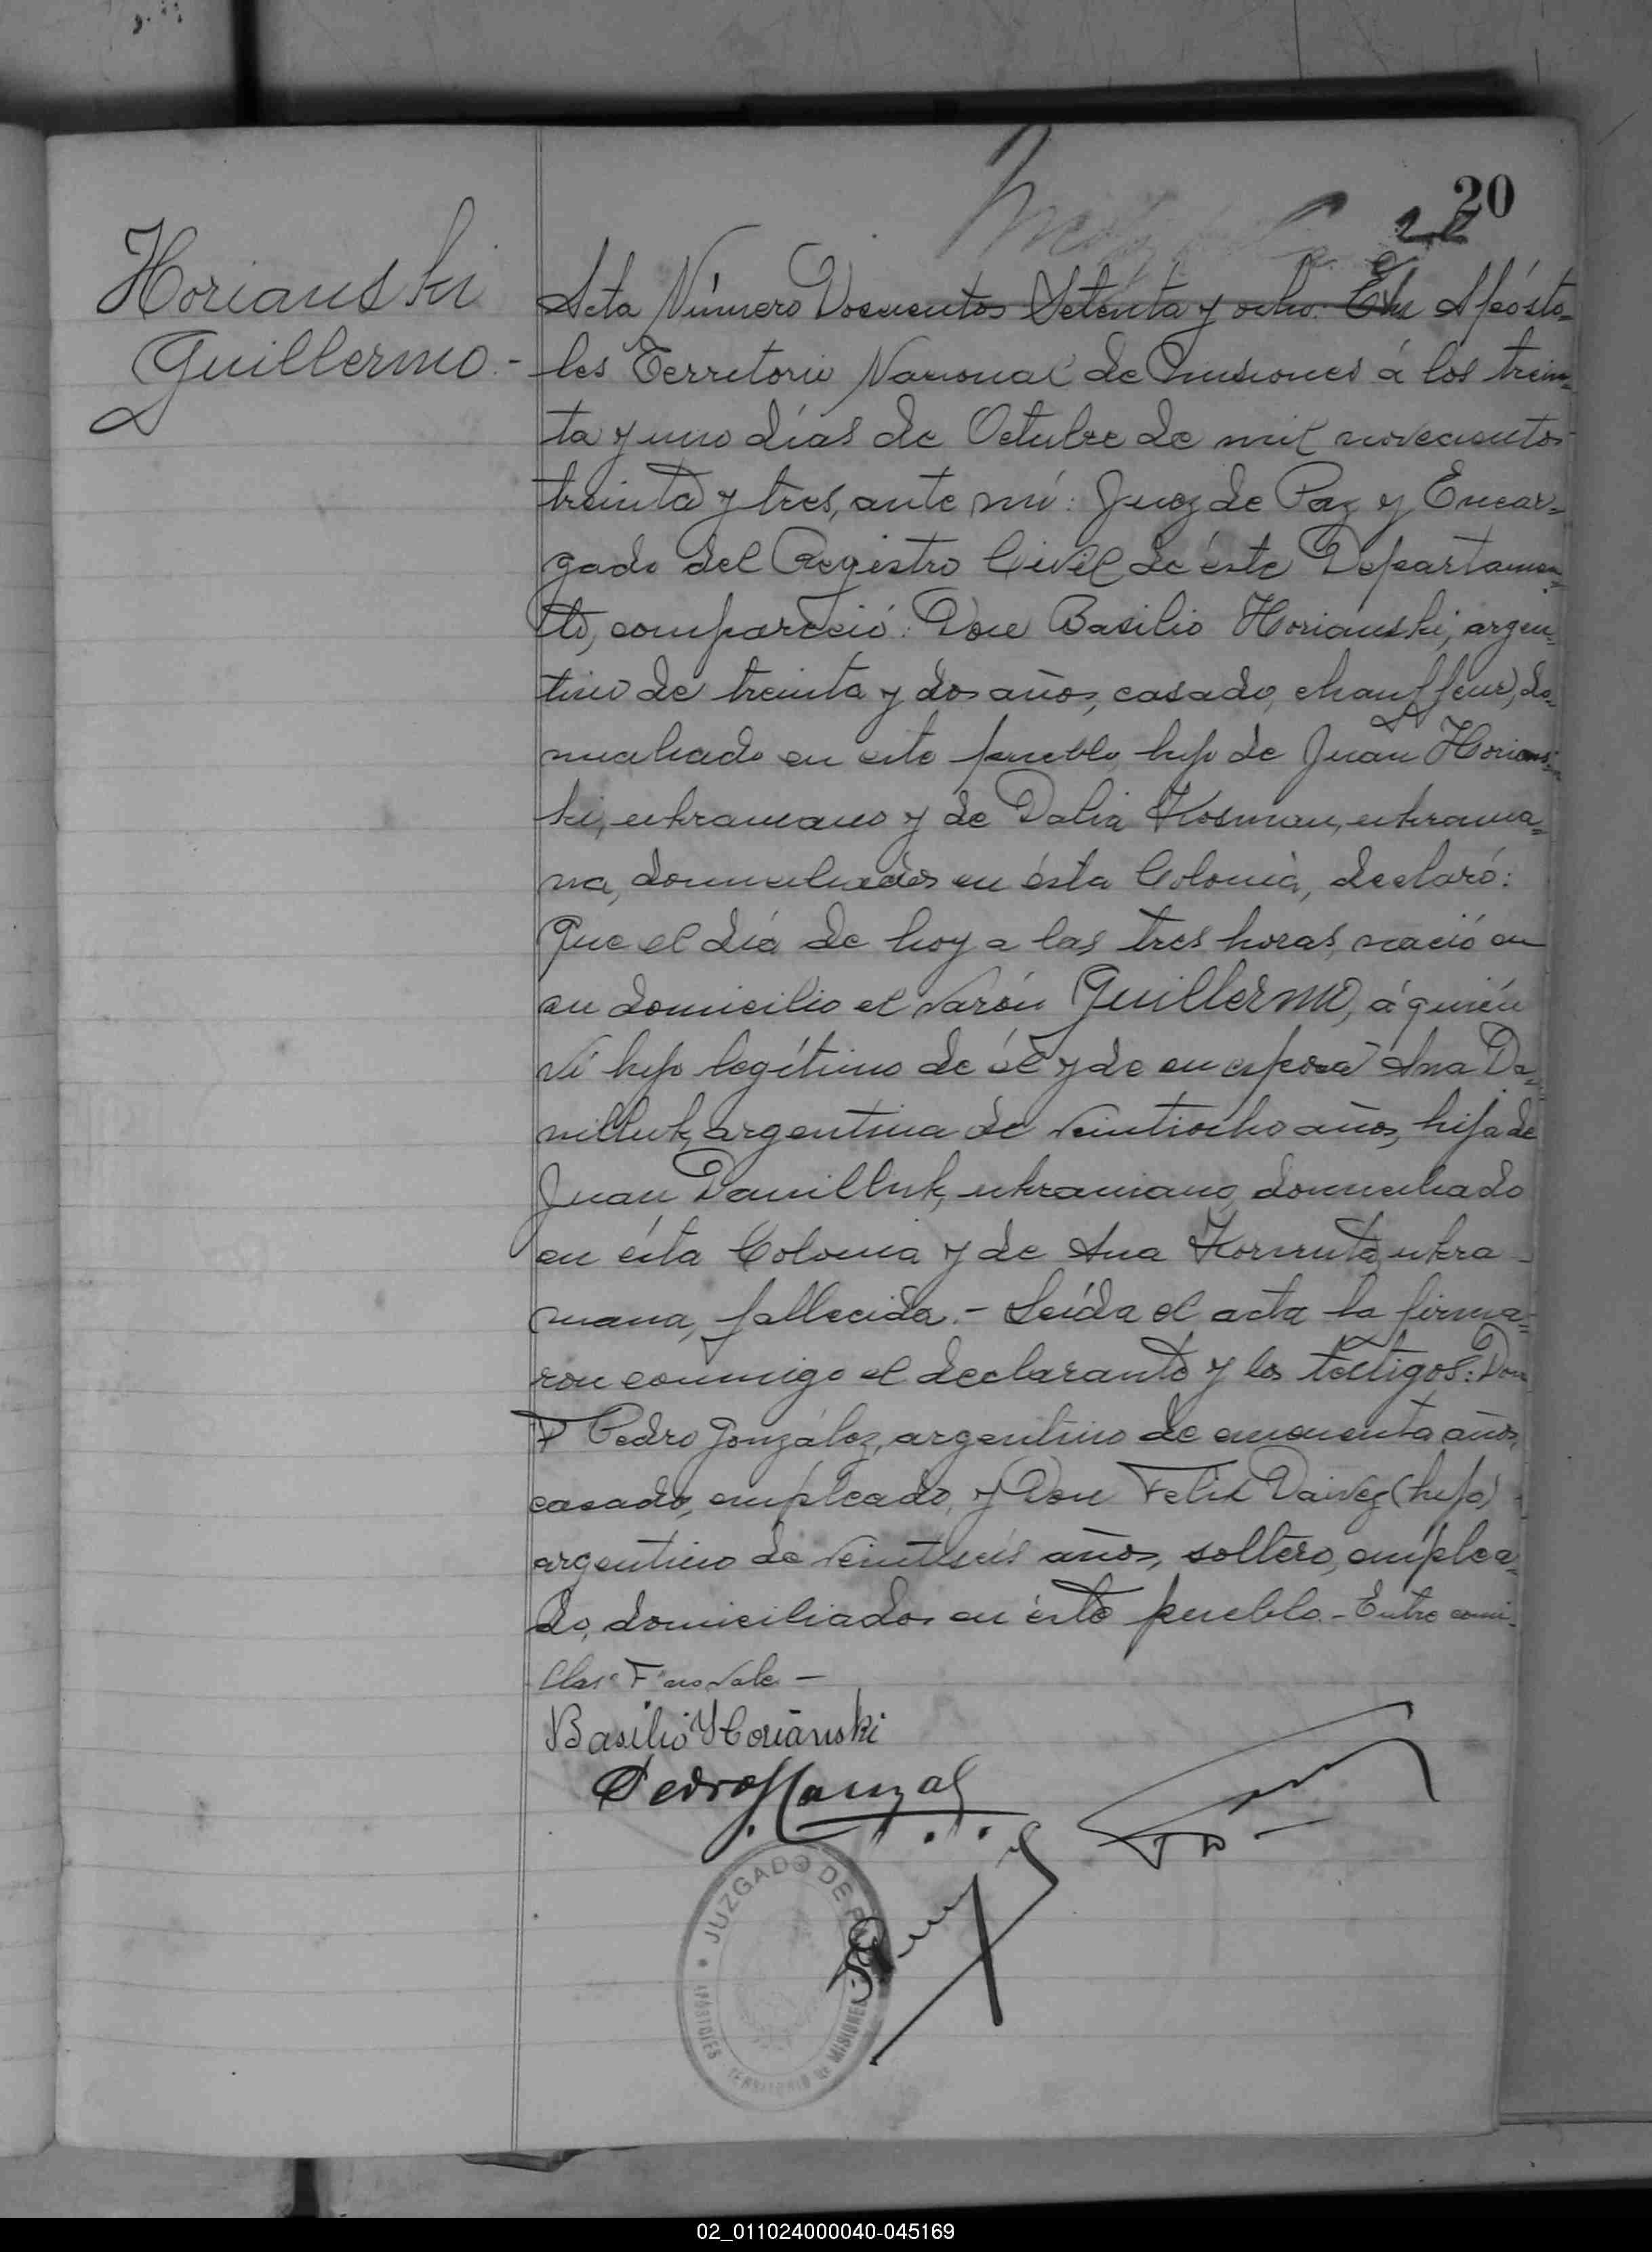 20
22
Horianski
Guillermo.-
Acta Número Doscientos Setenta y ocho. En Apósto-
les Territorio Nacional de Misiones á los trein-
ta y uno días de Octubre de mil novecientos
treinta y tres, ante mí: Juez de Paz y Encar-
gado del Registro Civil de éste Departamen-
to, compareció: Don Basilio Horianski, argen-
tino de treinta y dos años, casado, chauffeur, do-
miciliado en este pueblo hijo de Juan Horians-
ki, ukraniano y de Dalia Kosman, ukrania-
na, domiciliados en ésta Colonia, declaró:
Que el día de hoy a las tres horas, nació en
su domicilio el varón Guillermo, á quién
ví hijo legítimo de él y de su esposa Ana Da-
nilluk, argentina de veintiocho años, hija de
Juan Danilluk, ukraniano domiciliado
en ésta Colonia y de Ana Kornuta, ukra-
niana, fallecida.- Leída el acta la firma-
ron conmigo el declarante y los testigos: Don
F Pedro González, argentino de cincuenta años,
casado, empleado, y Don Felix Daivez (hijo)
argentino de veintiseis años, soltero, emplea-
do, domiciliados en éste pueblo.- Entre comi-
llas "F" no vale.-
Basilio Horianski
Pedro Gonzal
JUZGADO DE PAZ
APÓSTOLES TERRITORIO DE MISIONES
02_011024000040-045169